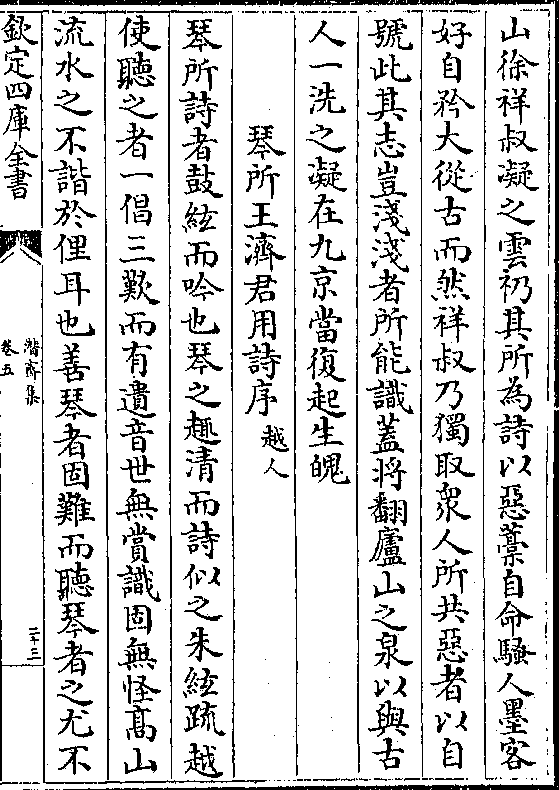 山徐祥叔凝之雲礽其所為詩以惡藁自命騷人墨客
好自矜大從古而然祥叔乃獨取衆人所共惡者以自
號此其志豈淺淺者所能識蓋將翻廬山之泉以與古
人一洗之凝在九京當復起生魄
琴所王濟君用詩序越人
琴所詩者鼓絃而吟也琴之趣清而詩似之朱絃疏越
使聽之者一倡三歎而有遺音世無賞識固無怪髙山
流水之不諧於俚耳也善琴者固難而聽琴者之尤不
欽定四庫全書
潛齋集
卷五
二十三